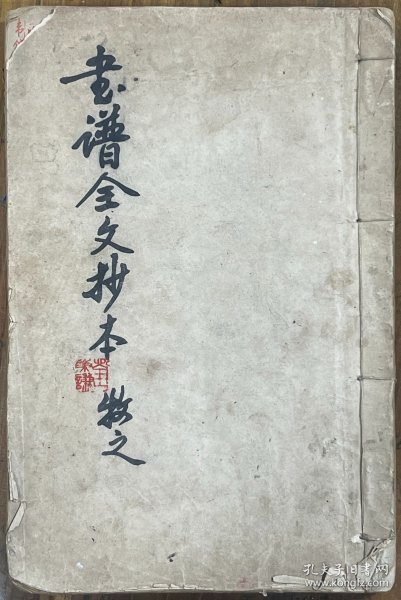 書譜全文抄本
牧之
孔夫子旧书网
www.kongfz.com